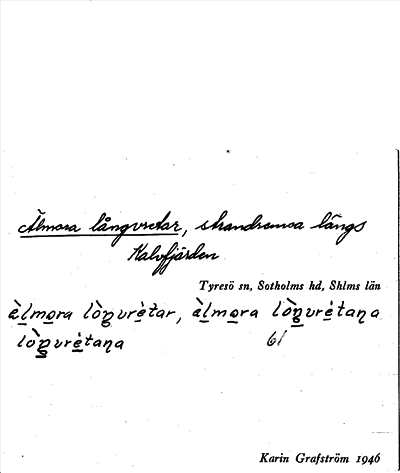 Älmora långvretar, strandremsa längs
Kalvfjärden
Tyresö sn, Sotholms hd, Shlms län
ὲlmo̲ra lὸŋvrètar, ὲlmo̲ra lὸŋvrètaṇa
lὸŋvrètaṇa 61
Karin Grafström 1946